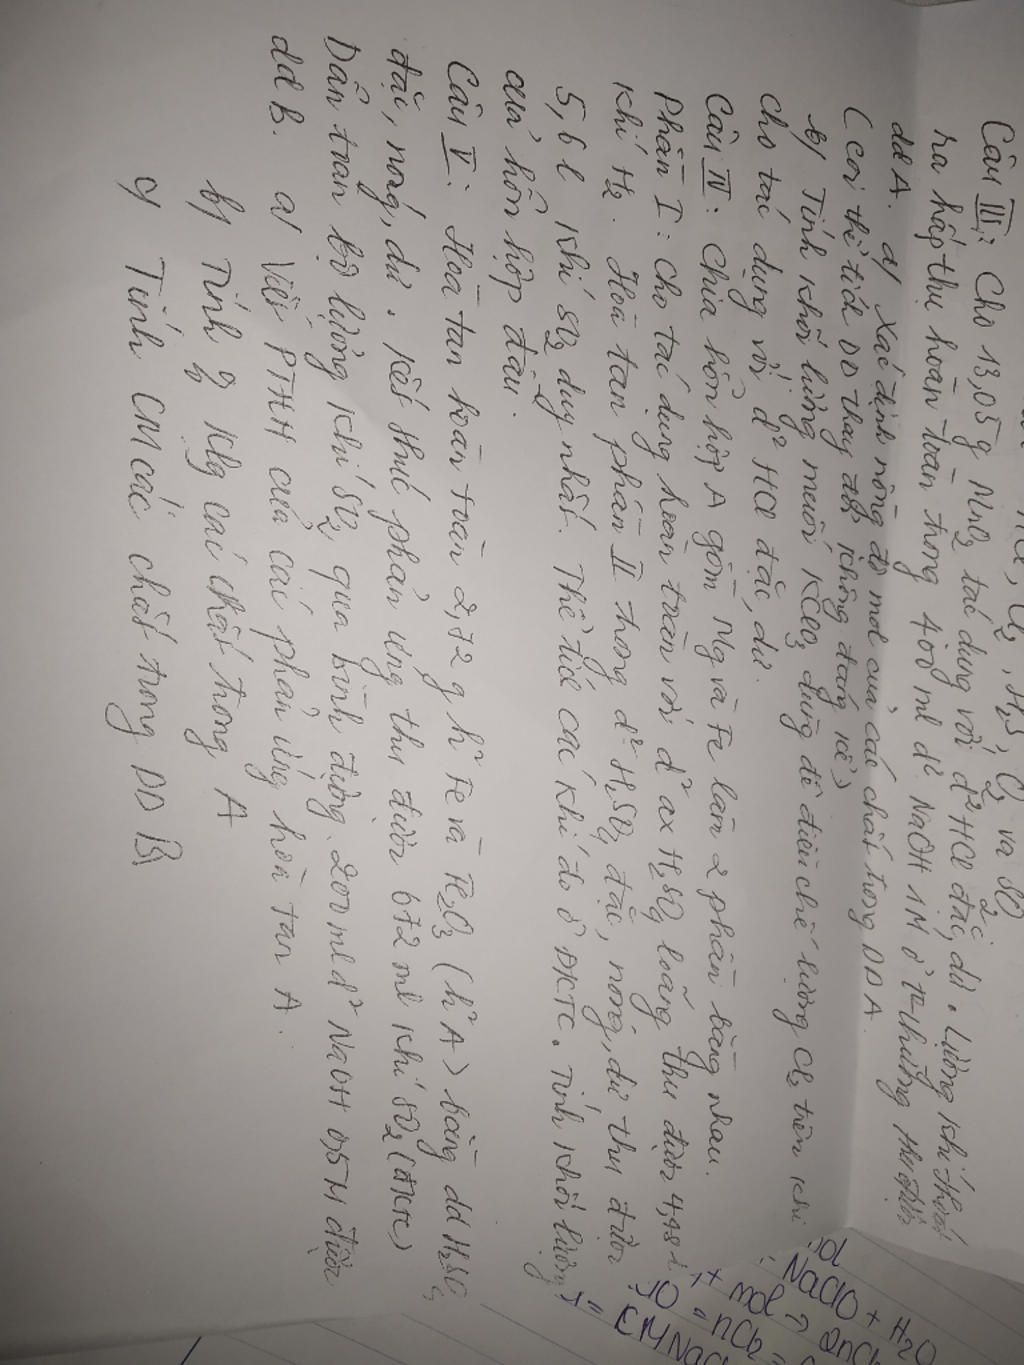 HCl, Cl2, H2S, O2 và SO2
Câu III: Cho 13,05g MnO2 tác dụng với d² HCl đặc, dư. Lượng khí thoát
ra hấp thụ hoàn toàn trong 400 ml d² NaOH 1M ở t° thường thu được
dd A. a/ Xác định nồng độ mol của các chất trong DD A.
( coi thể tích DD thay đổi không đáng kể )
b/ Tính khối lượng muối KClO3 dùng để điều chế lượng Cl2 trên khi
cho tác dụng với d² HCl đặc, dư.
Câu IV: Chia hỗn hợp A gồm Mg và Fe làm 2 phần bằng nhau.
Phần I: Cho tác dụng hoàn toàn với d² ax H2SO4 loãng thu được 4,48 l
khí H2. Hoà tan phần II trong d² H2SO4 đặc, nóng, dư thu được
5,6 l khí SO2 duy nhất. Thể tích các khí đo ở ĐKTC. Tính khối lượng
của hỗn hợp đầu.
Câu V: Hoà tan hoàn toàn 2,72 g h² Fe và Fe2O3 (h² A) bằng dd H2SO4
đặc, nóng, dư. Kết thúc phản ứng thu được 672 ml khí SO2 (đktc)
Dẫn toàn bộ lượng khí SO2 qua bình đựng 200 ml d² NaOH 0,5M được
dd B. a/ Viết PTHH của các phản ứng hòa tan A.
b/ Tính % klg các chất trong A
c/ Tính CM các chất trong DD B
NaClO + H2O
mol →
= nCl2 =